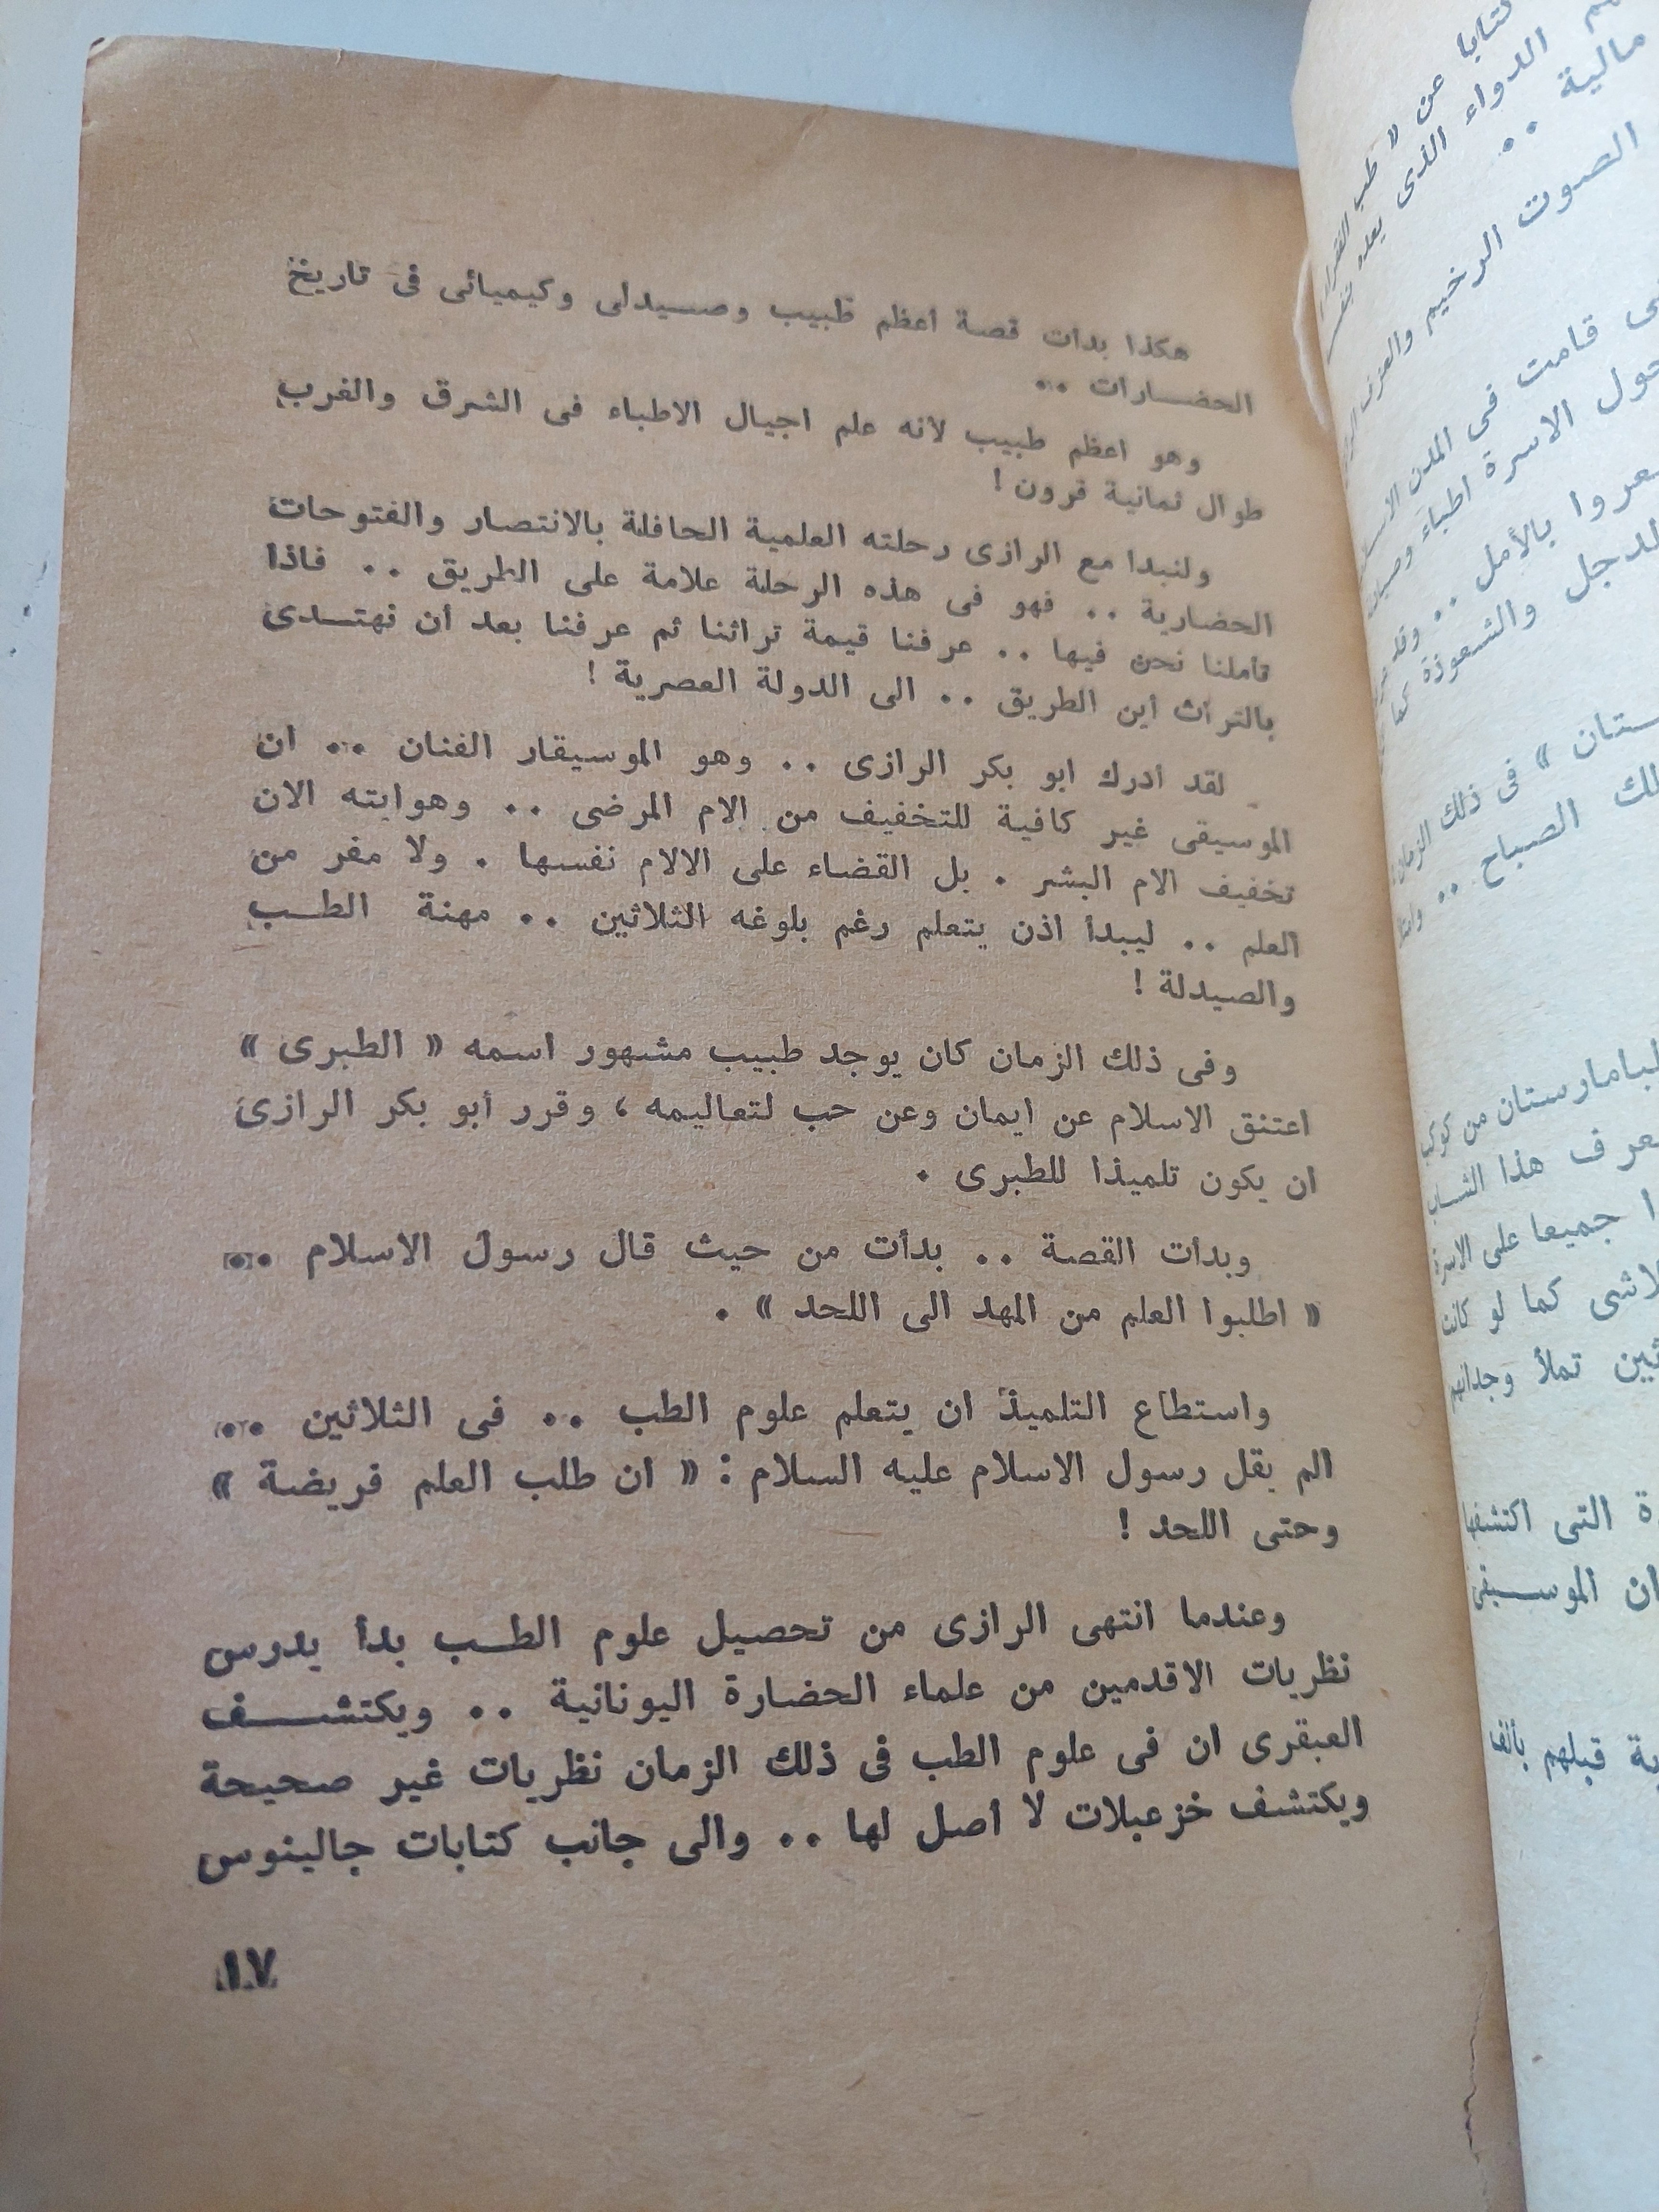 هكذا بدأت قصة أعظم طبيب وصيدلى وكيميائى فى تاريخ
الحضارات ..
وهو اعظم طبيب لأنه علم اجيال الاطباء فى الشرق والغرب
طوال ثمانية قرون !
ولنبدا مع الرازى رحلته العلمية الحافلة بالانتصار والفتوحات
الحضارية .. فهو فى هذه الرحلة علامة على الطريق .. فاذا
تأملنا نحن فيها .. عرفنا قيمة تراثنا ثم عرفنا بعد أن نهتدى
بالتراث أين الطريق .. الى الدولة العصرية !
لقد أدرك ابو بكر الرازى .. وهو الموسيقار الفنان .. ان
الموسيقى غير كافية للتخفيف من الام المرضى .. وهوايته الان
تخفيف الام البشر . بل القضاء على الالام نفسها . ولا مفر من
العلم .. ليبدأ اذن يتعلم رغم بلوغه الثلاثين .. مهنة الطب
والصيدلة !
وفى ذلك الزمان كان يوجد طبيب مشهور اسمه « الطبرى »
اعتنق الاسلام عن ايمان وعن حب لتعاليمه ، وقرر أبو بكر الرازى
ان يكون تلميذا للطبرى .
وبدأت القصة .. بدأت من حيث قال رسول الاسلام ..
« اطلبوا العلم من المهد الى اللحد » .
واستطاع التلميذ ان يتعلم علوم الطب .. فى الثلاثين ..
الم يقل رسول الاسلام عليه السلام : « ان طلب العلم فريضة »
وحتى اللحد !
وعندما انتهى الرازى من تحصيل علوم الطب بدأ يدرس
نظريات الاقدمين من علماء الحضارة اليونانية .. ويكتشف
العبقرى ان فى علوم الطب فى ذلك الزمان نظريات غير صحيحة
ويكتشف خزعبلات لا أصل لها .. والى جانب كتابات جالينوس
١٧
الدواء الذى يعده
مالية ..
الصوت الرخيم والعزف
قامت فى المدن
حول الاسرة اطباء
بالأمل .. وقد
الدجل والشعوذة كما
فى ذلك الزمان
الصباح ..
من كوكب
هذا الشاب
جميعا على الاسرة
كما لو كانت
تملأ وجدانهم
التى اكتشفها
ان الموسيقى
قبلهم بألف